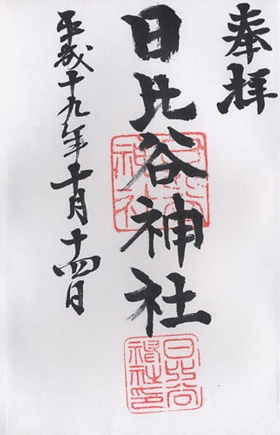 奉拝
日比谷神社
平成十九年十月十四日
日比谷
神社印